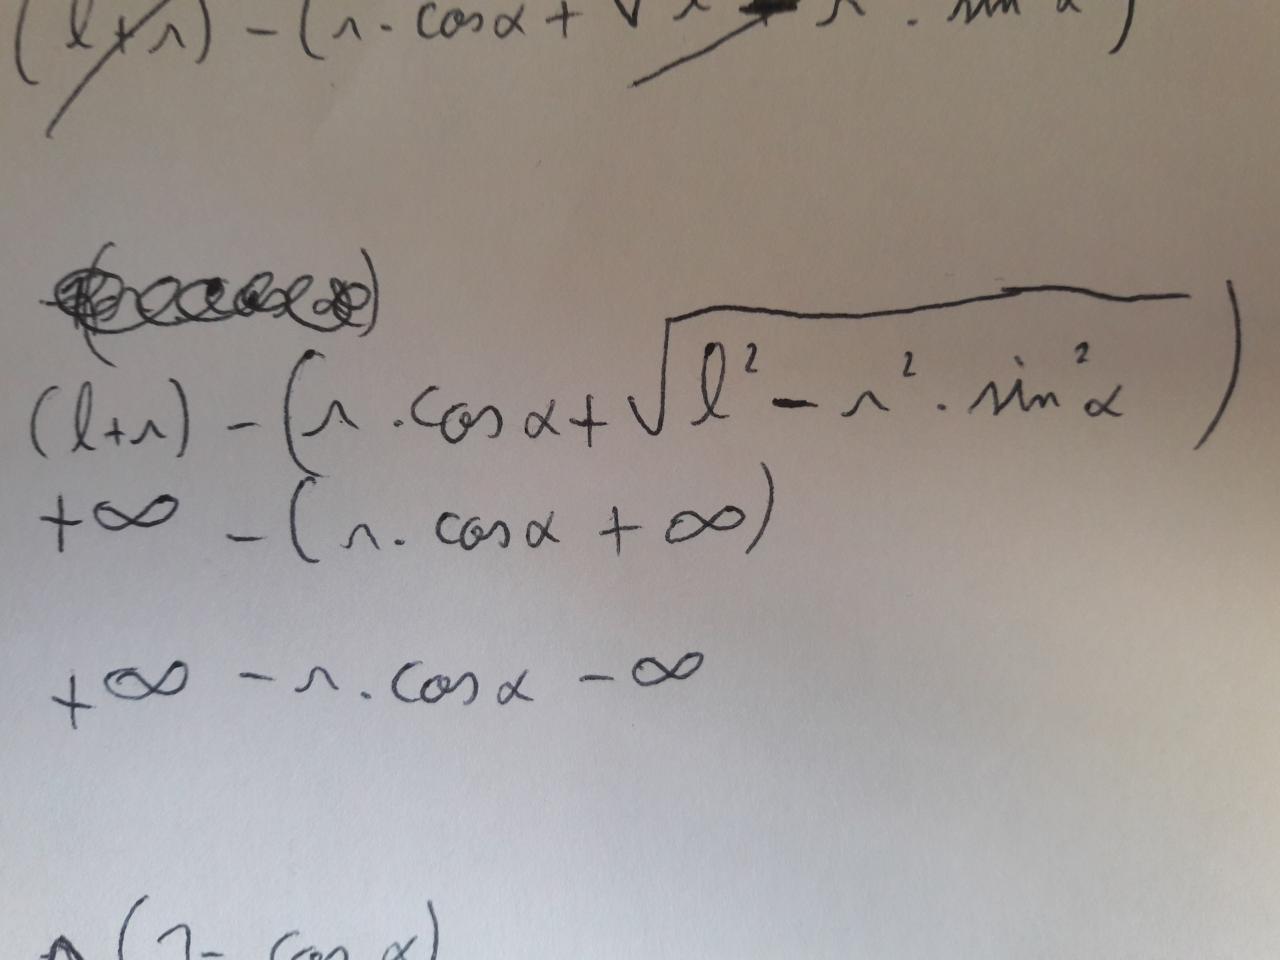 (l+r) - (r · cos α + √ r · sin α)
(l+r) - (r · cos α + √l² - r² · sin² α)
+∞ - (r · cos α + ∞)
+∞ - r · cos α - ∞
(1- cos α)